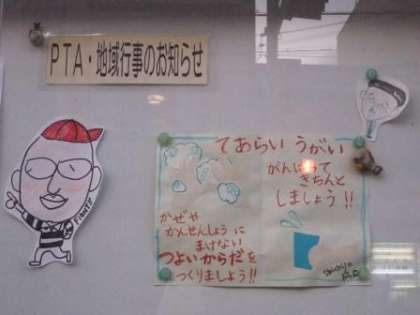 PTA・地域行事のお知らせ
てあらい うがい
がんばって
きちんと
しましょう!!
かぜや
かんせんしょうに
まけない
つよいからだを
つくりましょう!!